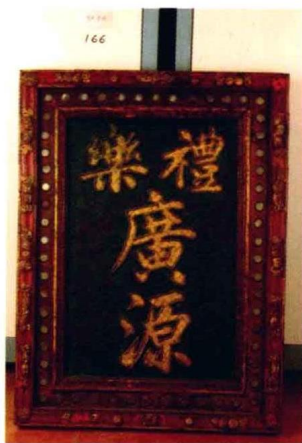 166
禮樂
廣
源